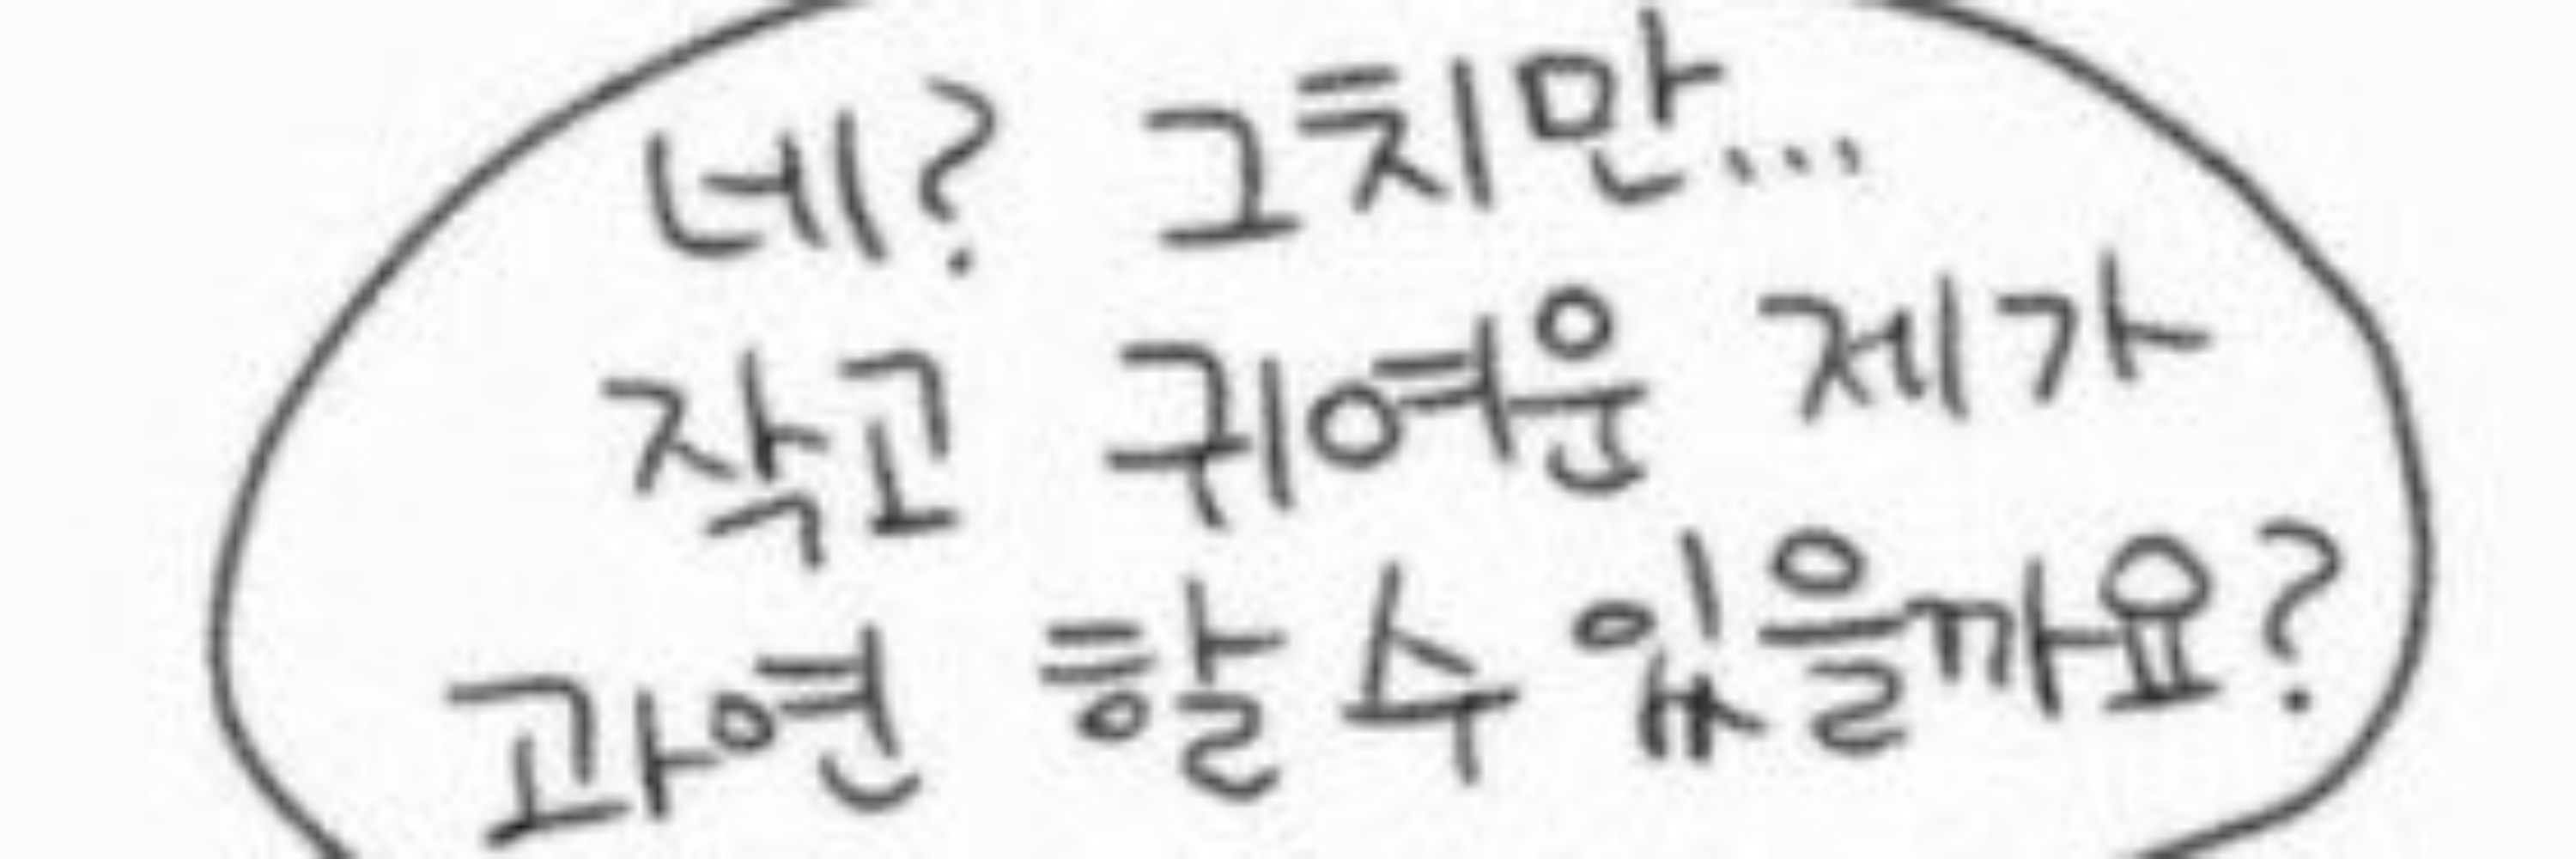 네? 그치만...
작고 귀여운 제가
과연 할 수 있을까요?